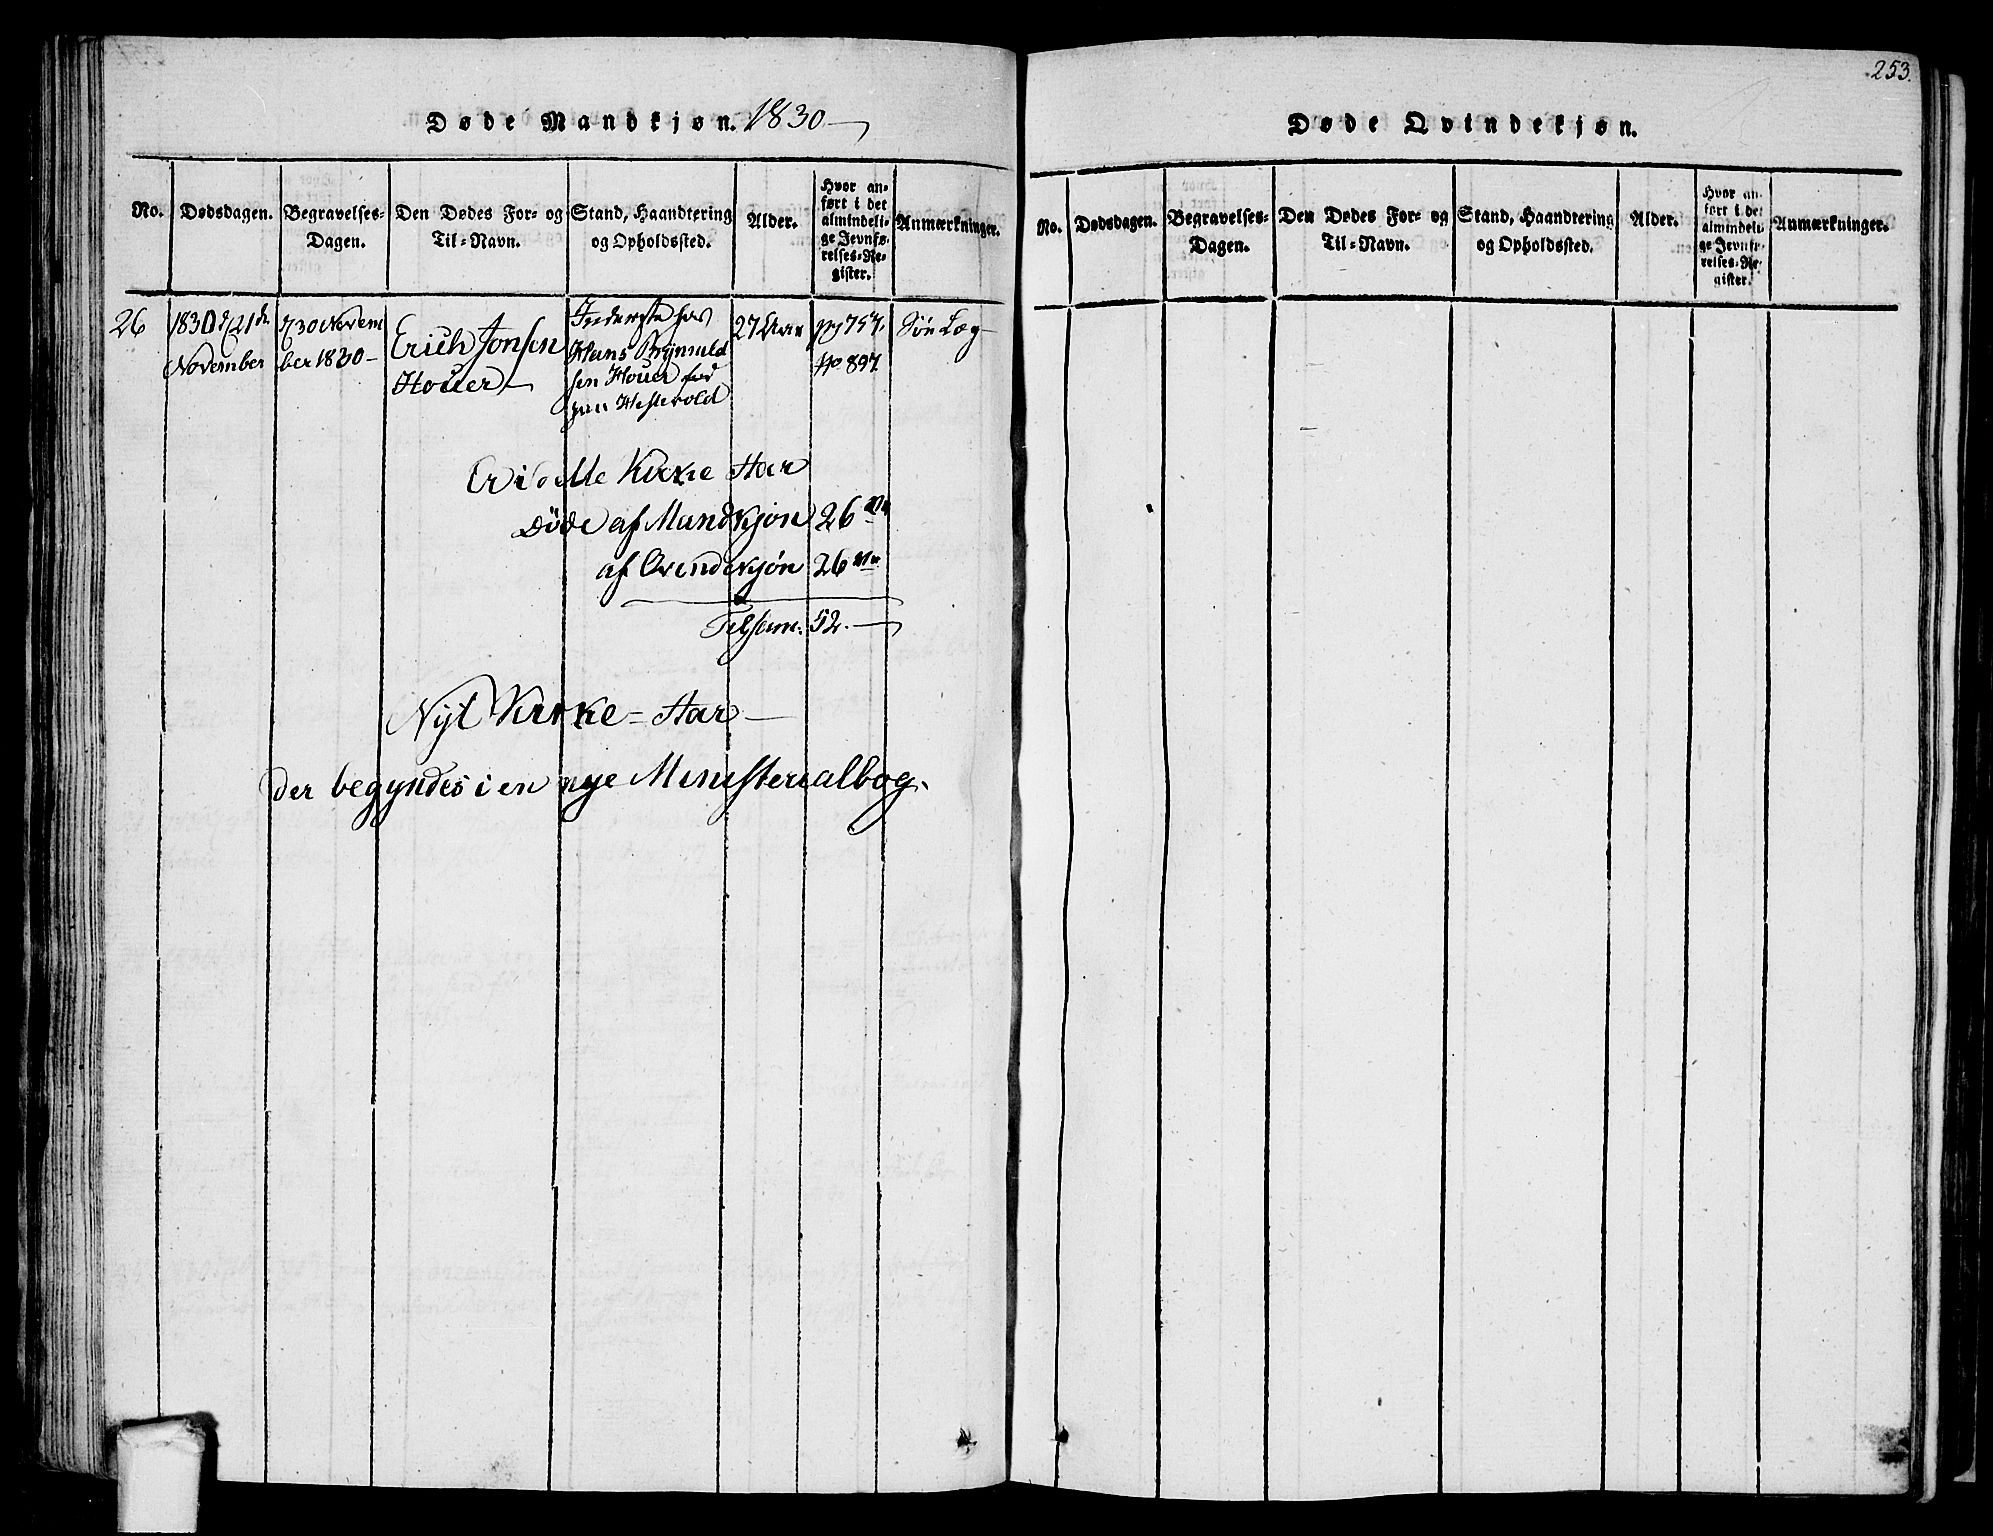 253.
Døde Mandkjøn. 1830
No.
Dødsdagen.
Begravelses-
Dagen.
Den Dødes For- og
Til-Navn.
Stand, Haandtering
og Opholdssted.
Alder.
Hvor an-
ført i det
almindeli-
ge Jevnfø-
relses-Re-
gister.
Anmærkninger.
26
1830 d 21de
November
d 30 Novem
ber 1830
Erich Jonsen
Houer
Inderste hos
Hans Brynuld
sen Houer fød
paa Hestevold
27 Aar
pg 757.
No 897.
Søn Læg
Er i dette Kirke Aar
Døde af Mandkjøn 26
af Qvindekjøn 26
Tilsam. 52.
Nyt Kirke=Aar
der begyndes i en nye Ministerialbog.
Døde Qvindekjøn.
No.
Dødsdagen.
Begravelses-
Dagen.
Den Dødes For- og
Til-Navn.
Stand, Haandtering
og Opholdssted.
Alder.
Hvor an-
ført i det
almindeli-
ge Jevnfø-
relses-Re-
gister.
Anmærkninger.